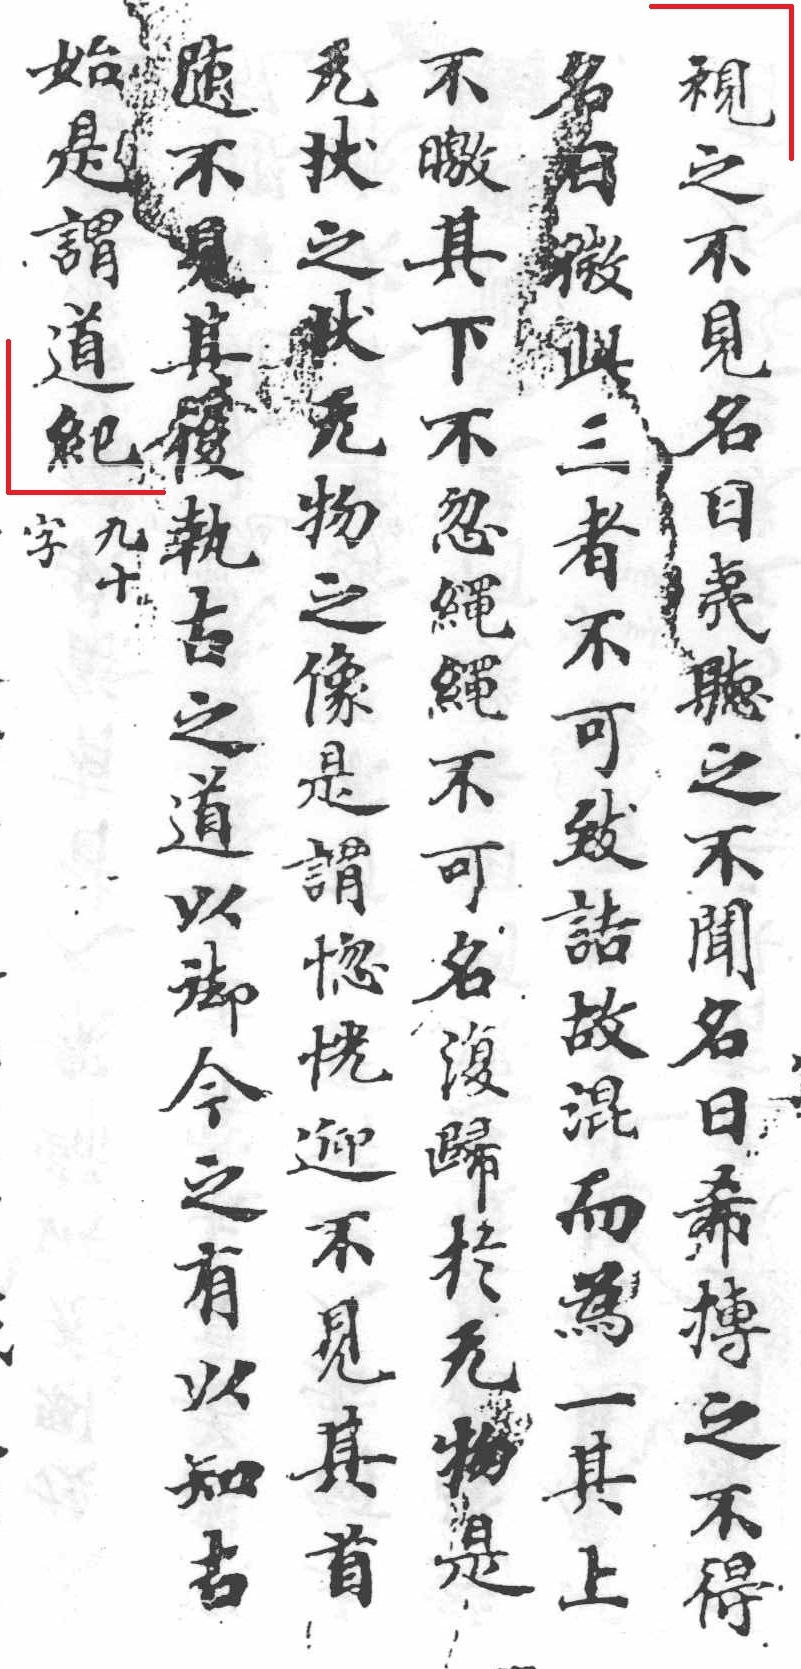 視之不見名曰夷聽之不聞名曰希搏之不得
名曰微此三者不可致詰故混而為一其上
不曒其下不忽繩繩不可名復歸於无物是
无狀之狀无物之像是謂惚恍迎不見其首
隨不見其後執古之道以御今之有以知古
始是謂道紀
九十
字